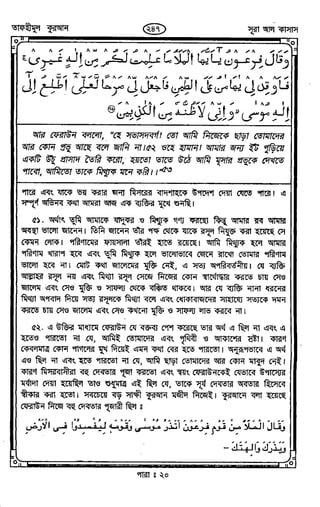 তাফহীমুল কুরআন
২৪৭
সূরা আল কাসাস
وَقَالَ فِرْعَوْنُ يٰٓاَيُّهَا الْمَلَاُ مَا عَلِمْتُ لَكُمْ مِّنْ اِلٰهٍ غَيْرِىْ ۚ
فَاَوْقِدْ لِىْ يٰهَامٰنُ عَلَى الطِّيْنِ فَاجْعَلْ لِّىْ صَرْحًا لَّعَلِّىْٓ اَطَّلِعُ اِلٰٓى
اِلٰهِ مُوْسٰى ۙ وَاِنِّىْ لَاَظُنُّهٗ مِنَ الْكٰذِبِيْنَ
আর ফেরাউন বললো, "হে সভাসদবর্গ! তো আমি নিজেকে ছাড়া তোমাদের
আর কোন প্রভু আছে বলে জানি না।৫২ ওহে হামান! আমার জন্য ইট পুড়িয়ে
একটি উঁচু প্রাসাদ তৈরি করো, হয়তো তাতে উঠে আমি মূসার প্রভুকে দেখতে
পাবো, আমিতো তাকে মিথ্যুক মনে করি।।"৫৩
পারে এবং যাকে ভয় করার জন্য মিসরের বাদশাহকে উপদেশ দেয়া যেতে পারে। এ
সম্পূর্ণ অভিনব কথা আমরা আজ এক ব্যক্তির মুখে শুনছি।
৫১. অর্থাৎ তুমি আমাকে যাদুকর ও মিথ্যুক গণ্য করছো কিন্তু আমার রব আমার
অবস্থা ভালো জানেন। তিনি জানেন তাঁর পক্ষ থেকে যাকে রসূল নিযুক্ত করা হয়েছে সে
কেমন লোক। পরিণামের ফায়সালা তাঁরই হাতে রয়েছে। আমি মিথ্যুক হলে আমার
পরিণাম খারাপ হবে এবং তুমি মিথ্যুক হলে ভালোভাবে জেনে রাখো তোমার পরিণাম
ভালো হবে না। মোট কথা জালেমের মুক্তি নেই, এ সত্য অপরিবর্তনীয়। যে ব্যক্তি
আল্লাহর রসূল নয় এবং মিথ্যা রসূল সেজে নিজের কোন স্বার্থোদ্ধার করতে চায় সেও
জালেম এবং সেও মুক্তি ও সাফল্য থেকে বঞ্চিত থাকবে। আর যে ব্যক্তি নানা ধরনের
মিথ্যা অপবাদ দিয়ে সত্য রসূলকে মিথ্যা বলে এবং ধোকাবাজদের সাহায্যে সত্যকে দমন
করতে চায় সেও জালেম এবং সেও কখনো মুক্তি ও সাফল্য লাভ করবে না।
৫২. এ উক্তির মাধ্যমে ফেরাউন যে বক্তব্য পেশ করেছে তার অর্থ এ ছিল না এবং এ
হতেও পারতো না যে, আমিই তোমাদের এবং পৃথিবী ও আকাশের স্রষ্টা। কারণ
কেবলমাত্র কোন পাগলের মুখ দিয়েই এমন কথা বের হতে পারতো। অনুরূপভাবে এ অর্থ
এও ছিল না এবং হতে পারতো না যে, আমি ছাড়া তোমাদের আর কোন মাবুদ নেই।
কারণ মিসরবাসীরা বহু দেবতার পূজা করতো এবং স্বয়ং ফেরাউনকেই যেভাবে উপাস্যের
মর্যাদা দেয়া হয়েছিল তাও শুধুমাত্র এই ছিল যে, তাকে সূর্য দেবতার অবতার হিসেবে
স্বীকার করা হতো। সবচেয়ে বড় সাক্ষী কুরআন মজীদ নিজেই। কুরআনে বলা হয়েছে
ফেরাউন নিজে বহু দেবতার পূজারী ছিল ঃ
وَقَالَ الْمَلَاُ مِنْ قَوْمِ فِرْعَوْنَ اَتَذَرُ مُوْسٰى وَقَوْمَهٗ لِيُفْسِدُوْا فِى الْاَرْضِ
وَيَذَرَكَ وَاٰلِهَتَكَ -
পারা ঃ ২০